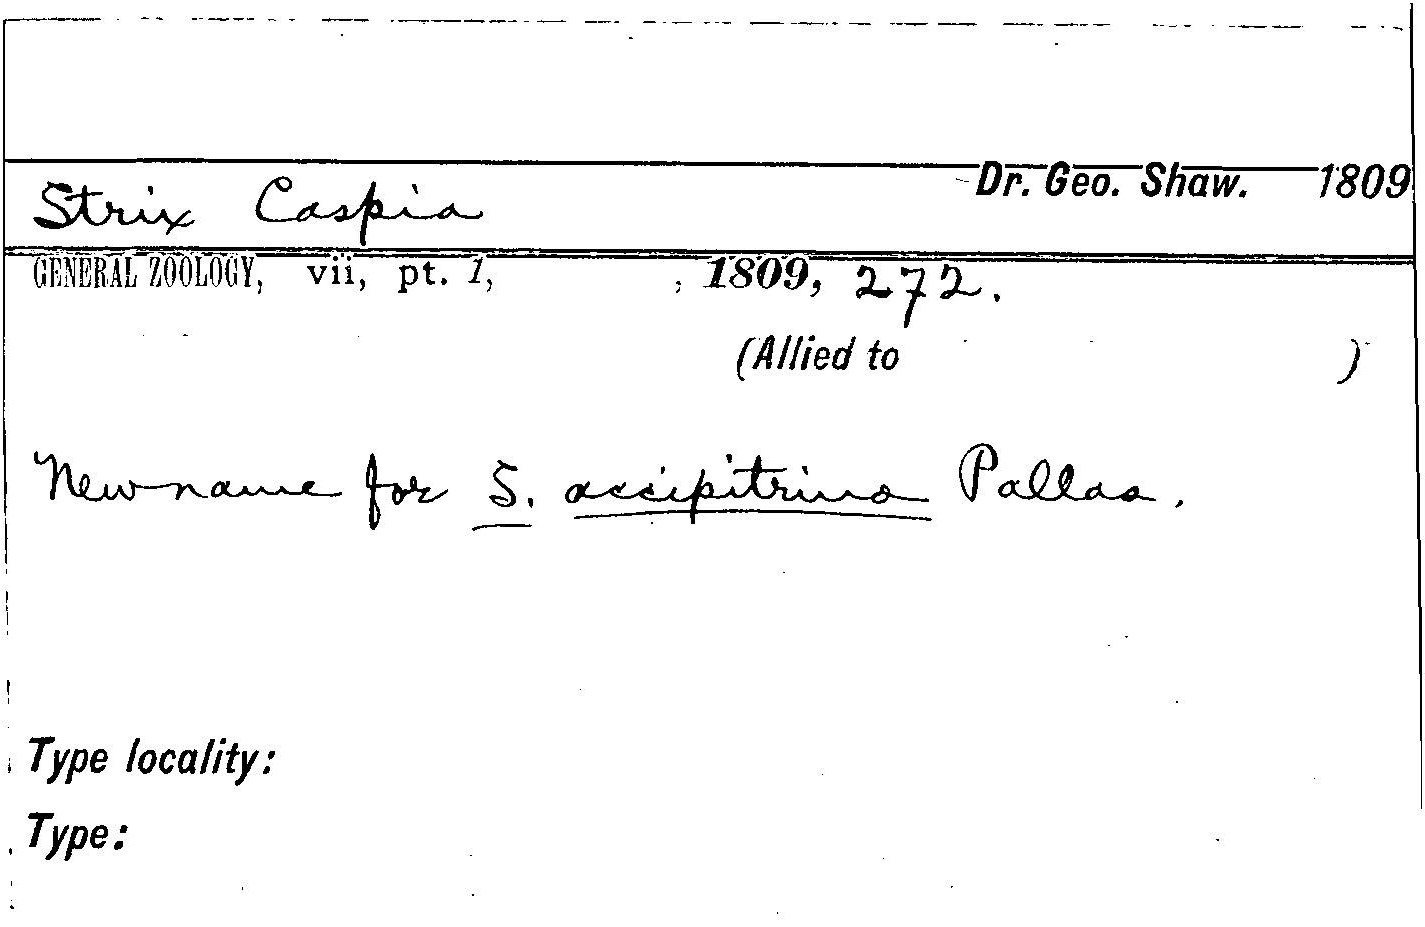 Strix Caspia Dr. Geo. Shaw. 1809
GENERAL ZOOLOGY, vii, pt. 1, , 1809, 272.
(Allied to )
New name for S. accipitrina Pallas.
Type locality:
Type: